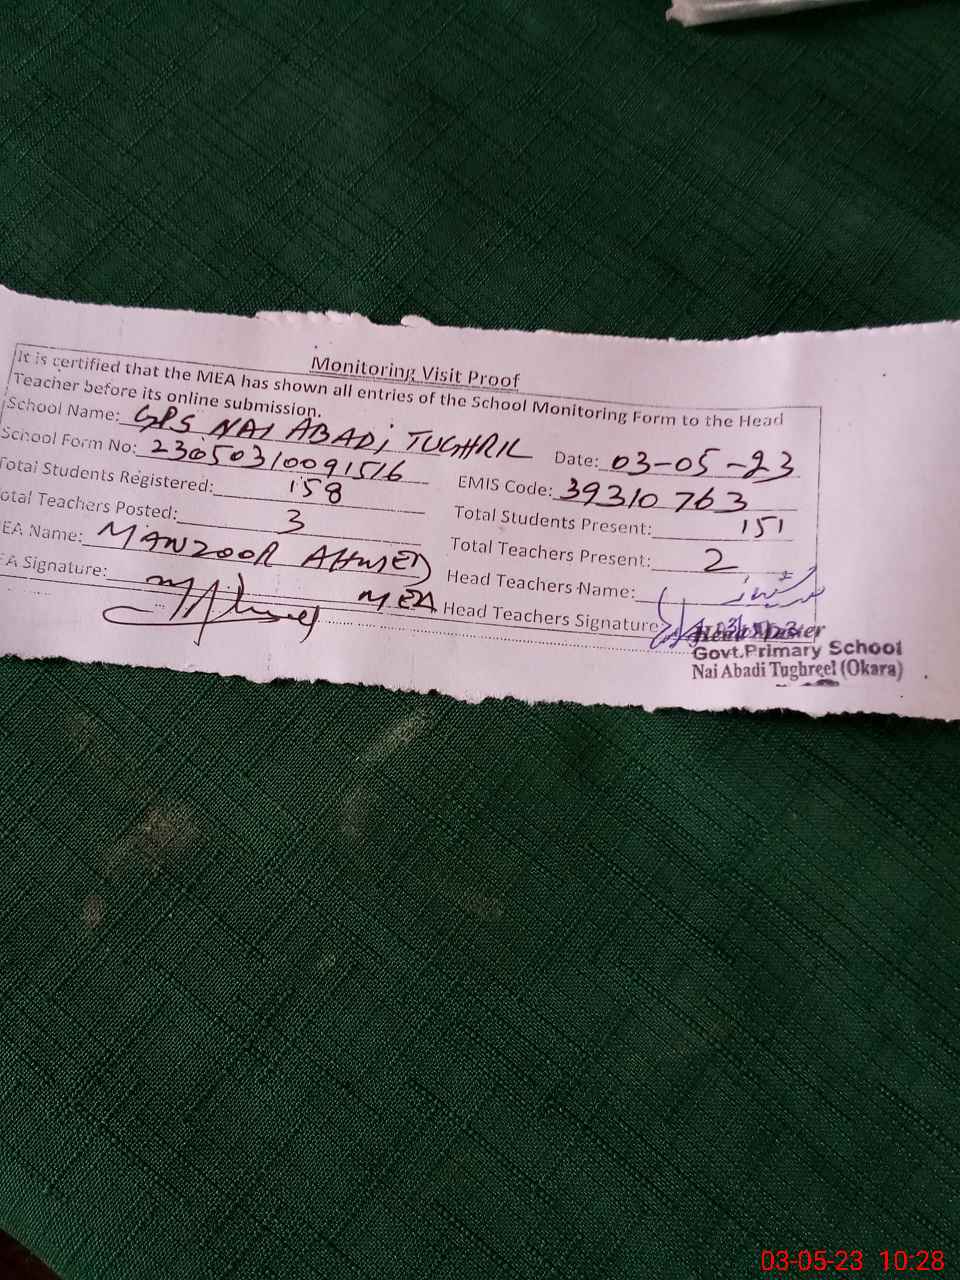 Monitoring Visit Proof
It is certified that the MEA has shown all entries of the School Monitoring Form to the Head
Teacher before its online submission.
School Name: GPS NAI ABADI TUGHRIL Date: 03-05-23
School Form No: 23050310091516 EMIS Code: 39310763
Total Students Registered: 158 Total Students Present: 151
otal Teachers Posted: 3 Total Teachers Present: 2
EA Name: MANZOOR AHMED Head Teachers Name:
EA Signature: MEA Head Teachers Signature
Head Master
Govt.Primary School
Nai Abadi Tughreel (Okara)
03-05-23 10:28